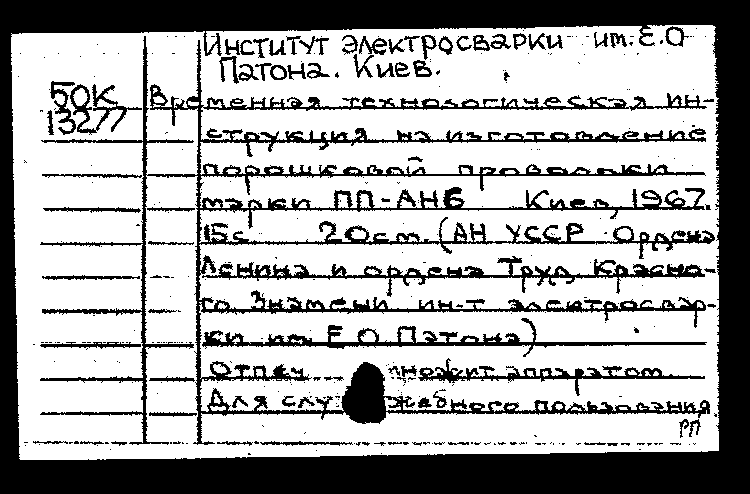 Институт электросварки им. Е.О
Патона. Киев.
50К
13277
Временная технологическая ин-
струкция на изготовление
порошковой проволоки
марки ПП-АН6 Киев, 1967.
15с. 20см. (АН УССР Ордена
Ленина и ордена Труд. Красно-
го Знамени ин-т электросвар-
ки им. Е О Патона)
Отпеч множит. аппаратом.
Для служебного пользования
РП